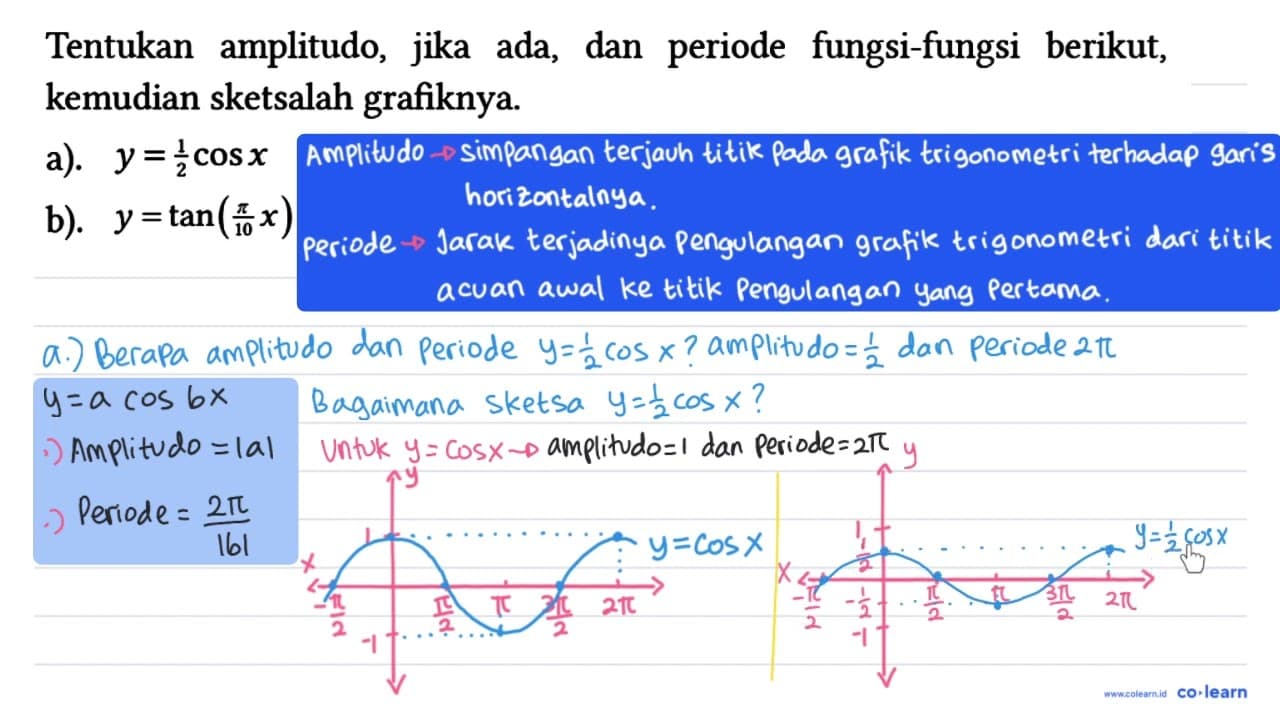 Tentukan amplitudo, jika ada, dan periode fungsi-fungsi berikut,
kemudian sketsalah grafiknya.
a). y = 1/2 cos x
b). y = tan(π/10 x)
Amplitudo → simpangan terjauh titik pada grafik trigonometri terhadap garis
horizontalnya.
Periode → Jarak terjadinya pengulangan grafik trigonometri dari titik
acuan awal ke titik pengulangan yang pertama.
a.) Berapa amplitudo dan periode y = 1/2 cos x? amplitudo = 1/2 dan periode 2π
y = a cos bx
∴) Amplitudo = |a|
∴) Periode = 2π/|b|
Bagaimana sketsa y = 1/2 cos x?
Untuk y = cos x → amplitudo = 1 dan periode = 2π
y
1
y = cos x
x
-π/2 π/2 π 3π/2 2π
-1
y
1
1/2
y = 1/2 cos x
x
-π/2 -1/2 π/2 π 3π/2 2π
-1
www.colearn.id co·learn